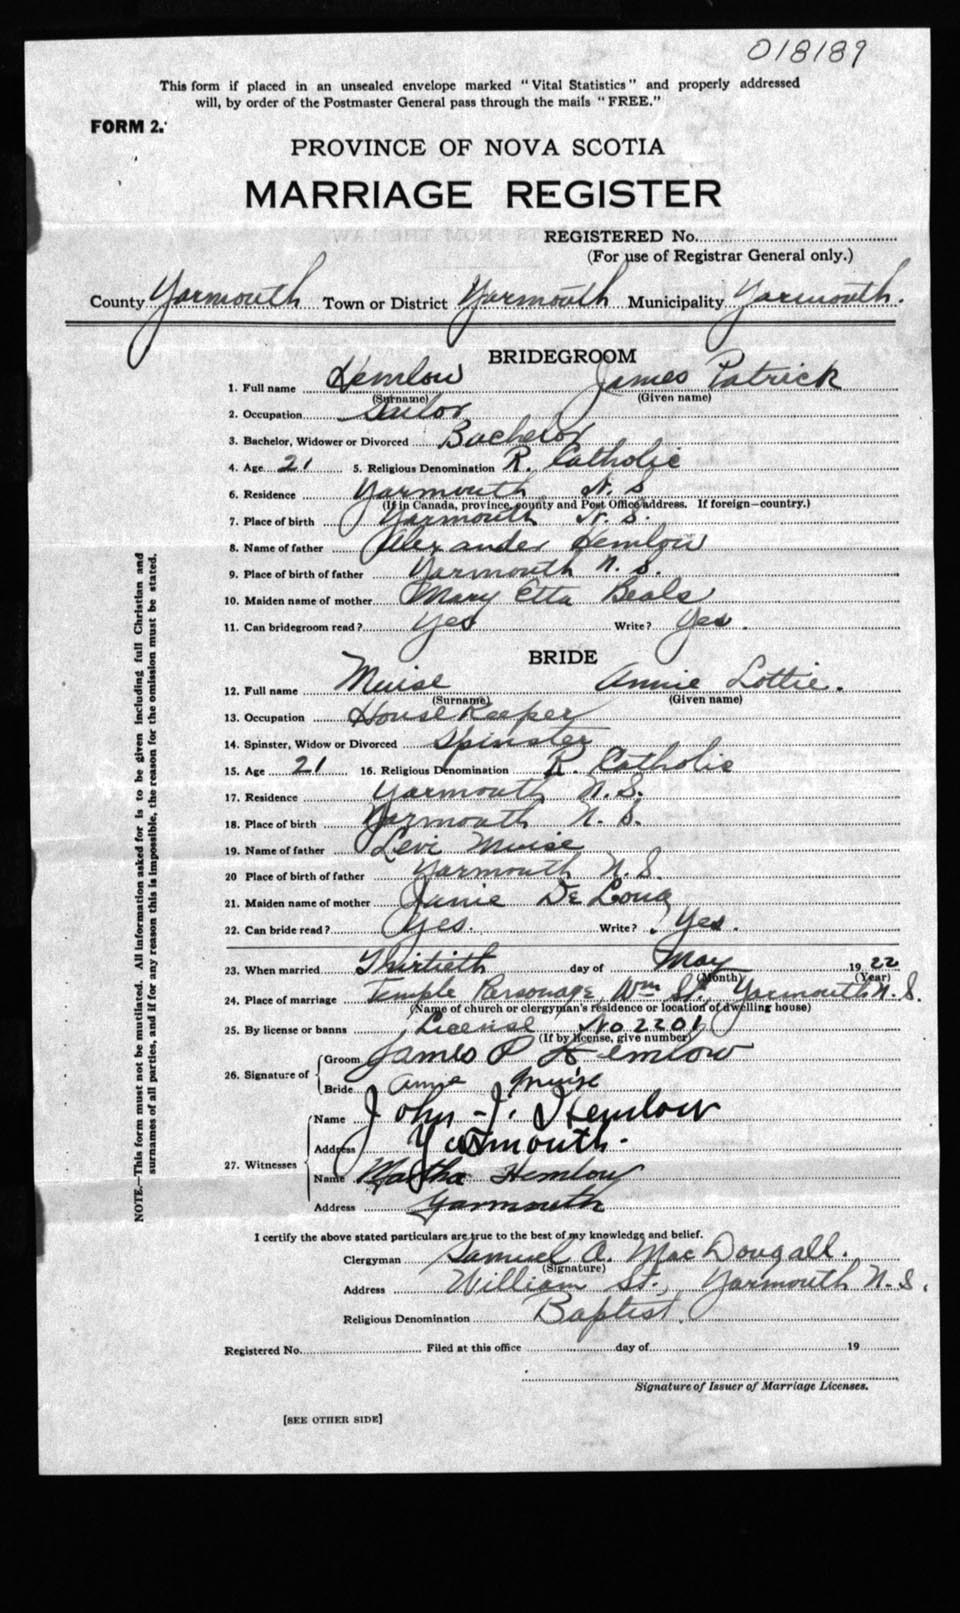 018189
This form if placed in an unsealed envelope marked "Vital Statistics" and properly addressed
will, by order of the Postmaster General pass through the mails "FREE."
FORM 2.
PROVINCE OF NOVA SCOTIA
MARRIAGE REGISTER
REGISTERED No.
(For use of Registrar General only.)
County Yarmouth Town or District Yarmouth Municipality Yarmouth.
BRIDEGROOM
1. Full name Hemlow James Patrick
(Surname) (Given name)
2. Occupation
3. Bachelor, Widower or Divorced Bachelor
4. Age 21 5. Religious Denomination R. Catholic
6. Residence Yarmouth N. S
(If in Canada, province, county and Post Office address. If foreign—country.)
7. Place of birth Yarmouth N. S.
8. Name of father Alexander Hemlow
9. Place of birth of father Yarmouth N. S.
10. Maiden name of mother Mary Etta Beals
11. Can bridegroom read? Yes Write? Yes.
BRIDE
12. Full name Muise Annie Lottie.
(Surname) (Given name)
13. Occupation House Keeper
14. Spinster, Widow or Divorced Spinster
15. Age 21 16. Religious Denomination R. Catholic
17. Residence Yarmouth N. S.
18. Place of birth Yarmouth N. S.
19. Name of father Levi Muise
20 Place of birth of father Yarmouth N. S.
21. Maiden name of mother Janie De Long
22. Can bride read? Yes. Write? Yes.
23. When married Thirtieth day of May 1922
(Month) (Year)
24. Place of marriage Temple Parsonage Wm St, Yarmouth N. S.
(Name of church or clergyman's residence or location of dwelling house)
25. By license or banns License No 2201
(If by license, give number)
26. Signature of Groom James P Hemlow
Bride Annie Muise
27. Witnesses Name John J. Hemlow
Address Yarmouth.
Name Martha Hemlow
Address Yarmouth
I certify the above stated particulars are true to the best of my knowledge and belief.
Clergyman Samuel A. MacDougall.
(Signature)
Address William St., Yarmouth N. S.
Religious Denomination Baptist.
Registered No. Filed at this office day of 19
Signature of Issuer of Marriage Licenses.
[SEE OTHER SIDE]
NOTE.—This form must not be mutilated. All information asked for is to be given including full Christian and
surnames of all parties, and if for any reason this is impossible, the reason for the omission must be stated.